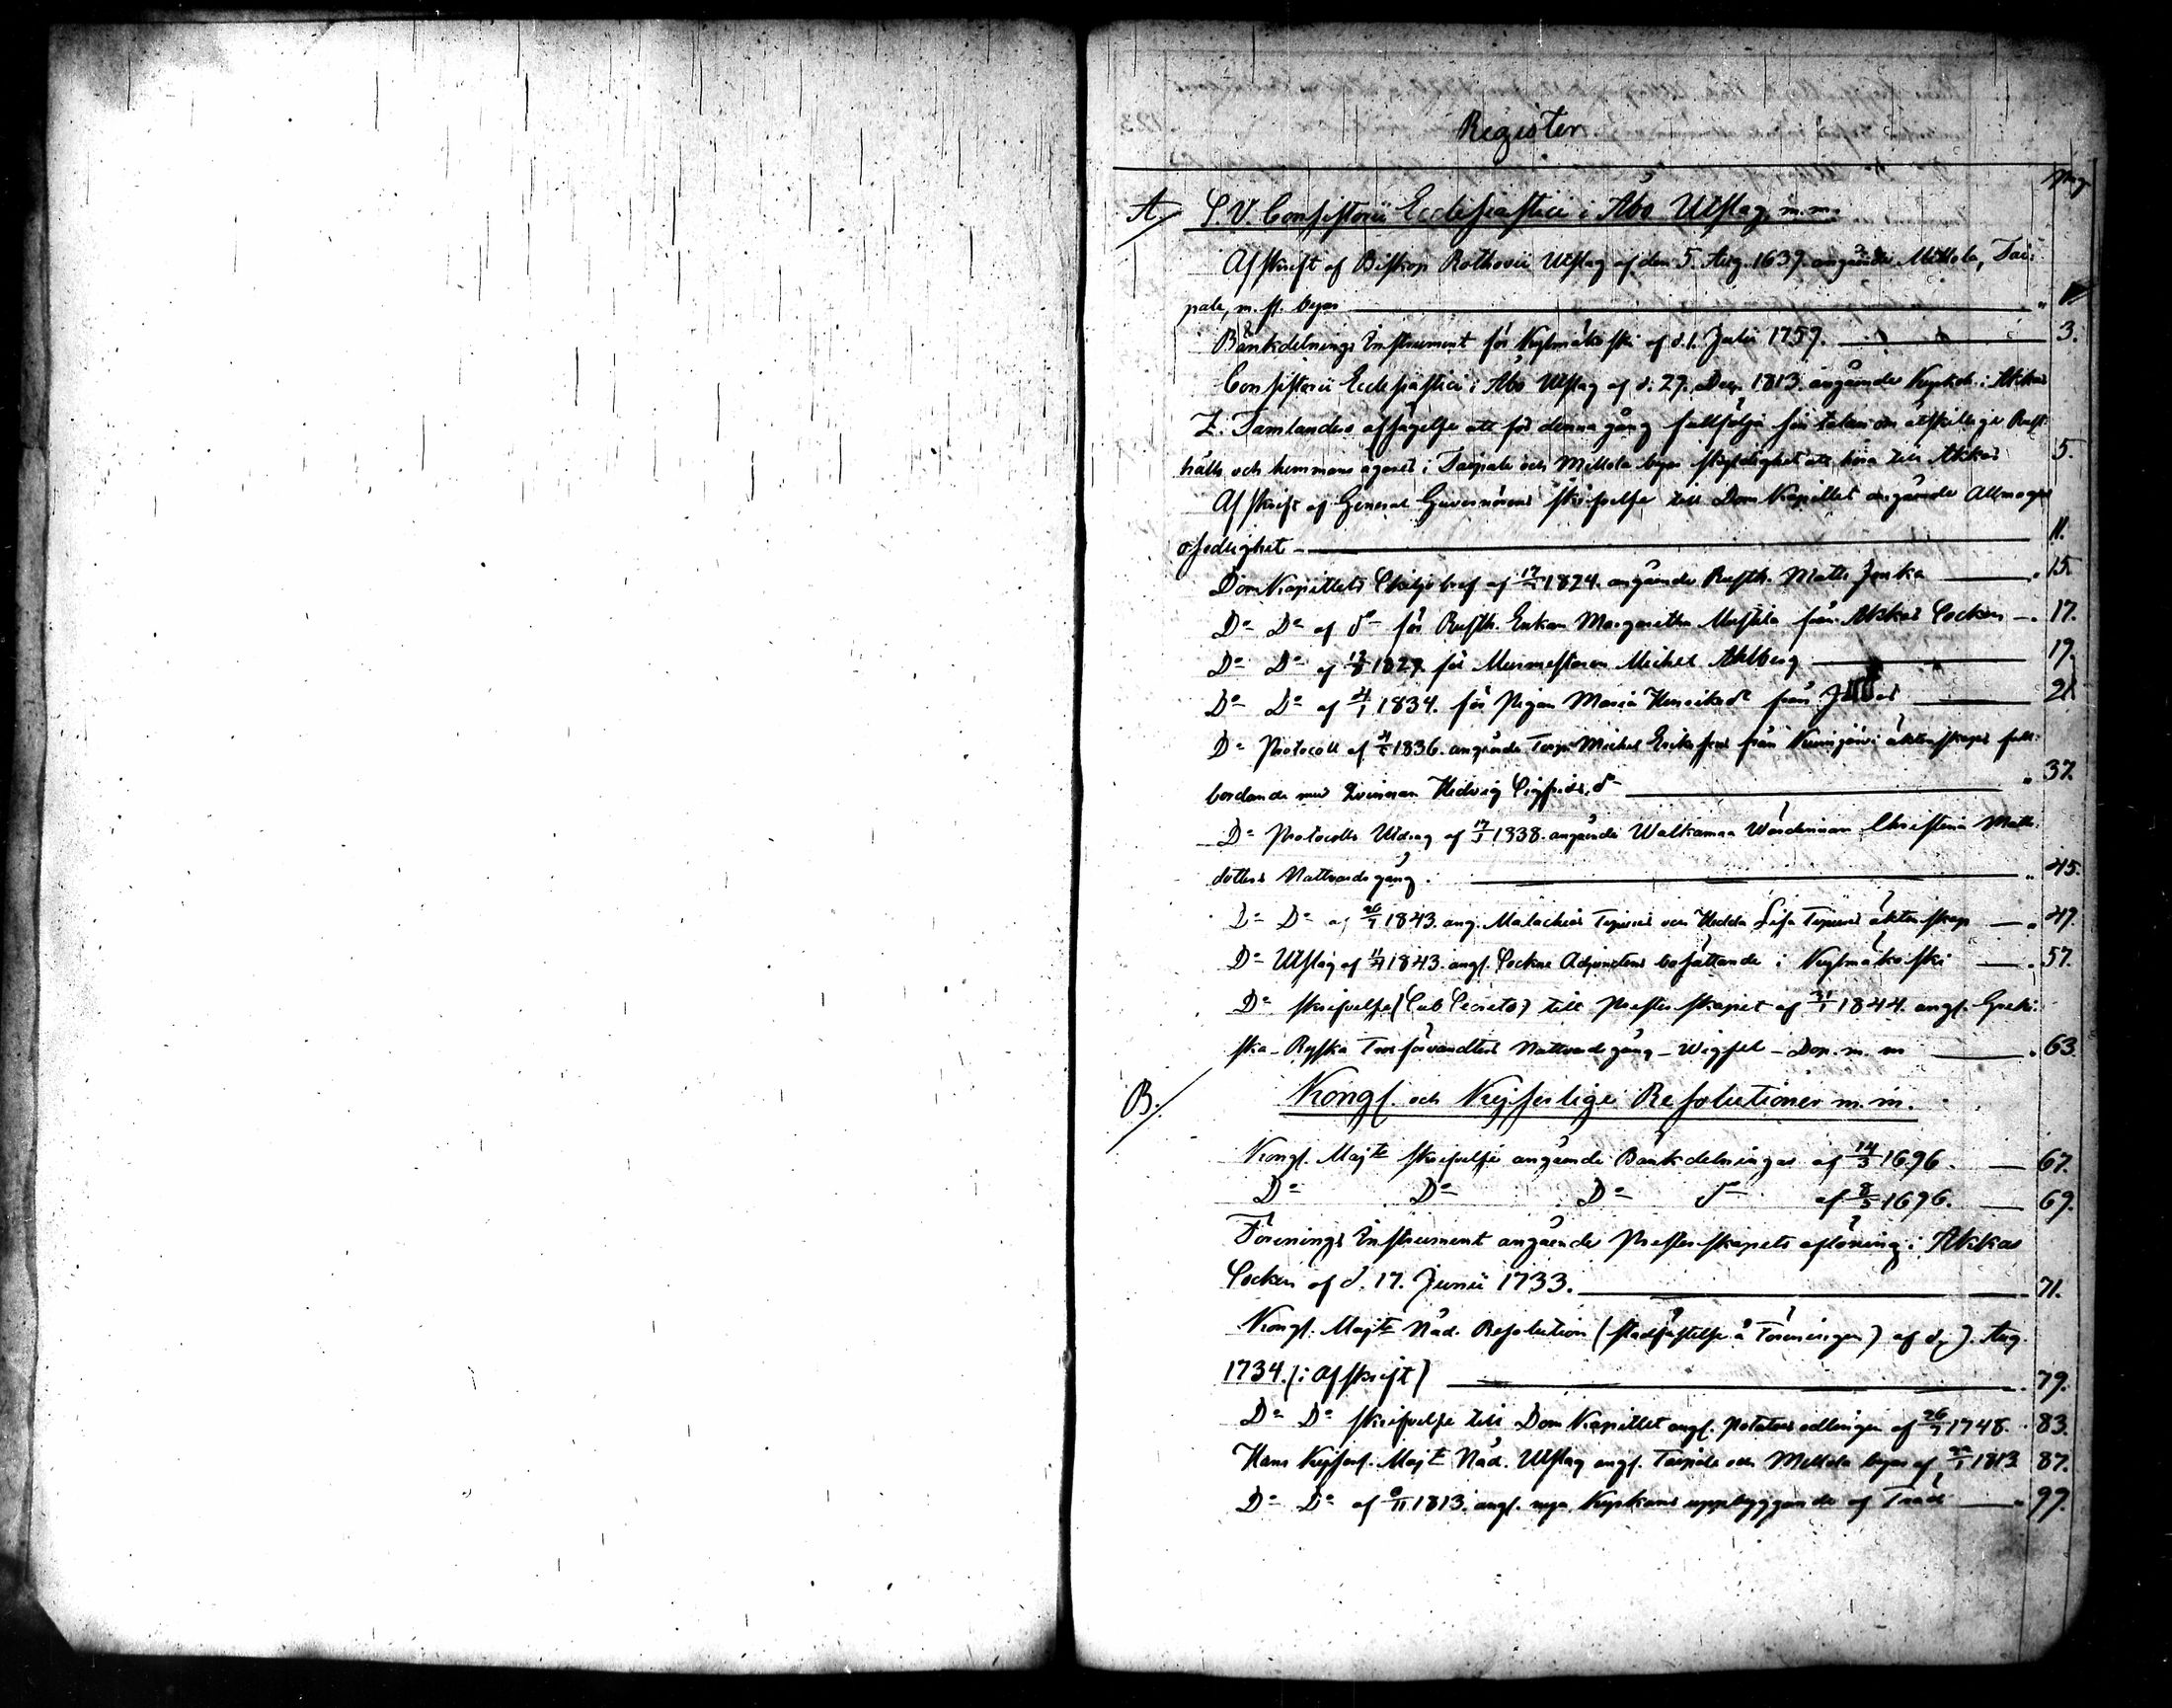 Register
pag
A/ S. V. Consistorii Ecclesiastici i Åbo Utslag, m.m.
Afskrift af Biskop Rothovii Utslag af den 5. Aug. 1639. angående Mellola, Tai-
pale, m. fl. byar " 1
Bänkdelnings Instrument för Kylmäkoski af d. 1. Julii 1759. 3.
Consistorii Ecclesiastici i Åbo Utslag af d. 29. Decr 1813. angående Kyrkoh. i Akkas
Z. Tamlanders afsägelse att för denna gång fullfölja sin talan om åtskillige Rust-
hålls och hemmans ägares i Taipale och Mellola byar skyldighet att höra till Akkas 5.
Afskrift af General Guvernörens skrifvelse till Dom Kapitlet angående Allmogens
osedlighet 11.
Dom Kapitlets Skiljobref af 1824. angående Rusth. Matts Jonka " 15.
Do Do af do för Rusth. Enkan Margaretha Mustila från Akkas Socken 17.
Do Do af 1827. för Murmästaren Michel Ahlberg 19.
Do Do af 1834. för Pigan Maria Henriksdr från 21
Do Protocoll af 1836. angående Torp. Michel Erikssons från Nunijärvi äktenskaps full-
bordande med Qvinnan Hedvig Sigfrids.dr " 37.
Do Protocolls Utdrag af 17/1 1838. angående Walkamaa Wärdinnan Christina Matts-
dotters Nattvardsgång. " 45.
Do Do af 26/7 1843. ang. Malachias Topenii och Hedda Lisa Topenii äktenskap " 49.
Do Utslag af 1843. angl. Sockne Adjunctens bosättande i Kylmäkoski " 57.
Do skrifvelse (Sub Secreto) till Presterskapet af 31/1 1844. angl. Greki-
ska-Ryska Trosförvandters Nattvardsgång - Wigsel - Dop. m. m " 63.
B./ Kongl. och Kejserlige Resolutioner m. m.
Kongl. Majts skrifvelse angående Bänkdelningar af 14/3 1696. 67.
Do Do Do do af 8/5 1696. 69.
Förenings Instrument angående Presterskapets aflöning i Akkas
Socken af d. 17. Junii 1733. 71.
Kongl. Majts Nåd. Resolution (stadfästelse å Föreningen) af d. 7. Aug.
1734. (i Afskrift) 79.
Do Do skrifvelse till Dom Kapitlet angl. potatoes odlingen af 26/7 1748. 83.
Hans Kejserl. Majts Nåd. Utslag angl. Taipale och Mellola byar af 22/1 1813 87.
Do Do af 1813. angl. nya Kyrkans uppbyggande af Träd " 97.